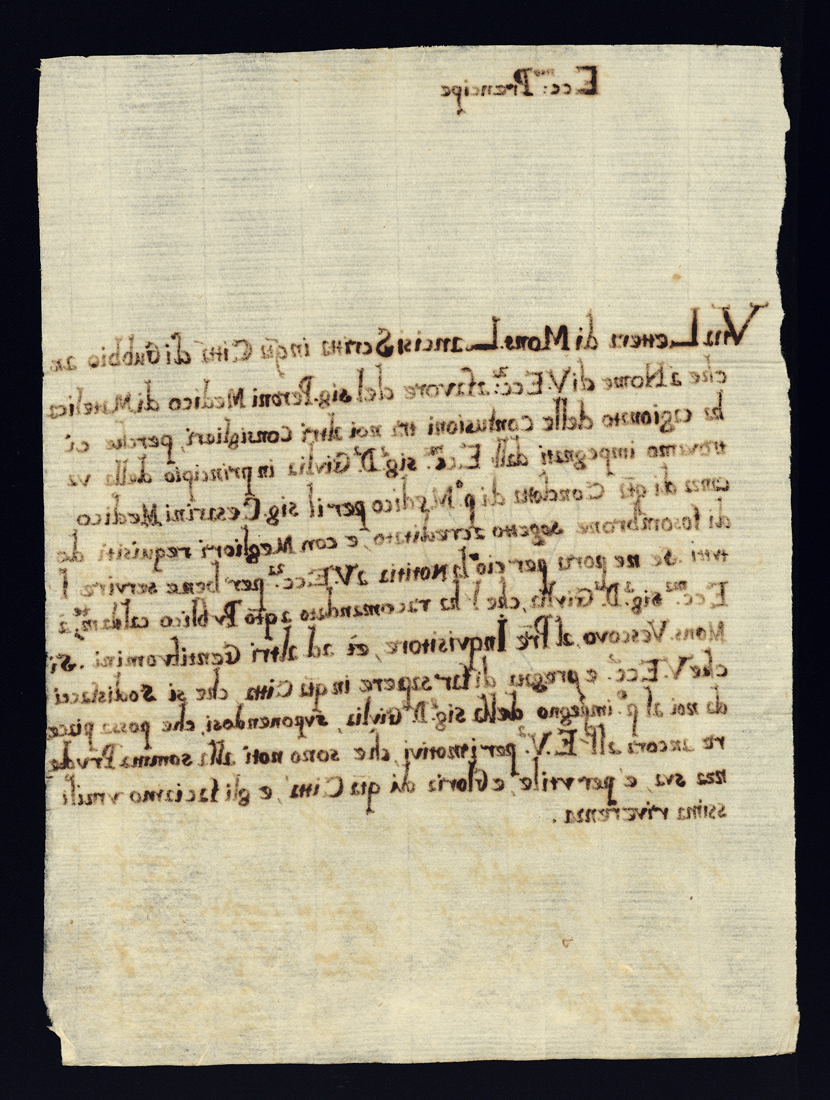 Ecc.mo Prencipe
Una Lettera di Mons. Lancisi Scritta in qta Città di Gubbio an
che a Nome di V. Ecc.za a favore del sig. Peroni Medico di Matelica
ha cagionato delle confusioni tra noi altri Consiglieri, perche ci
trovamo impegnati dall' Ecc.ma sig.a D.a Givlia in principio della va
canza di qta Condotta di p.o Medico per il sig. Cesarini Medico
di fosombrone sogetto acreditato, e con Megliori requisiti de
tutti. Se ne porta per ciò la Notitia a V. Ecc.za per bene servire l'
Ecc.ma sig.a D.a Givlia, che l' ha racomandato a qto Pvblico caldam.te, à
Mons. Vescovo, al Pre Inqvisitore, et ad altri Gentilvomini. Si
che V. Ecc.za e pregata di far sapere in qta Città che si sodisfacci
da noi al p.o impegno della sig.a D.a Givlia, svponendosi, che possa piace
re ancora all' E.V.a per i motivi, che sono noti alla somma Prvde
nza sva, e per vtile, e Gloria di qta Città, e gli facciamo vmili
ssima riverenza.